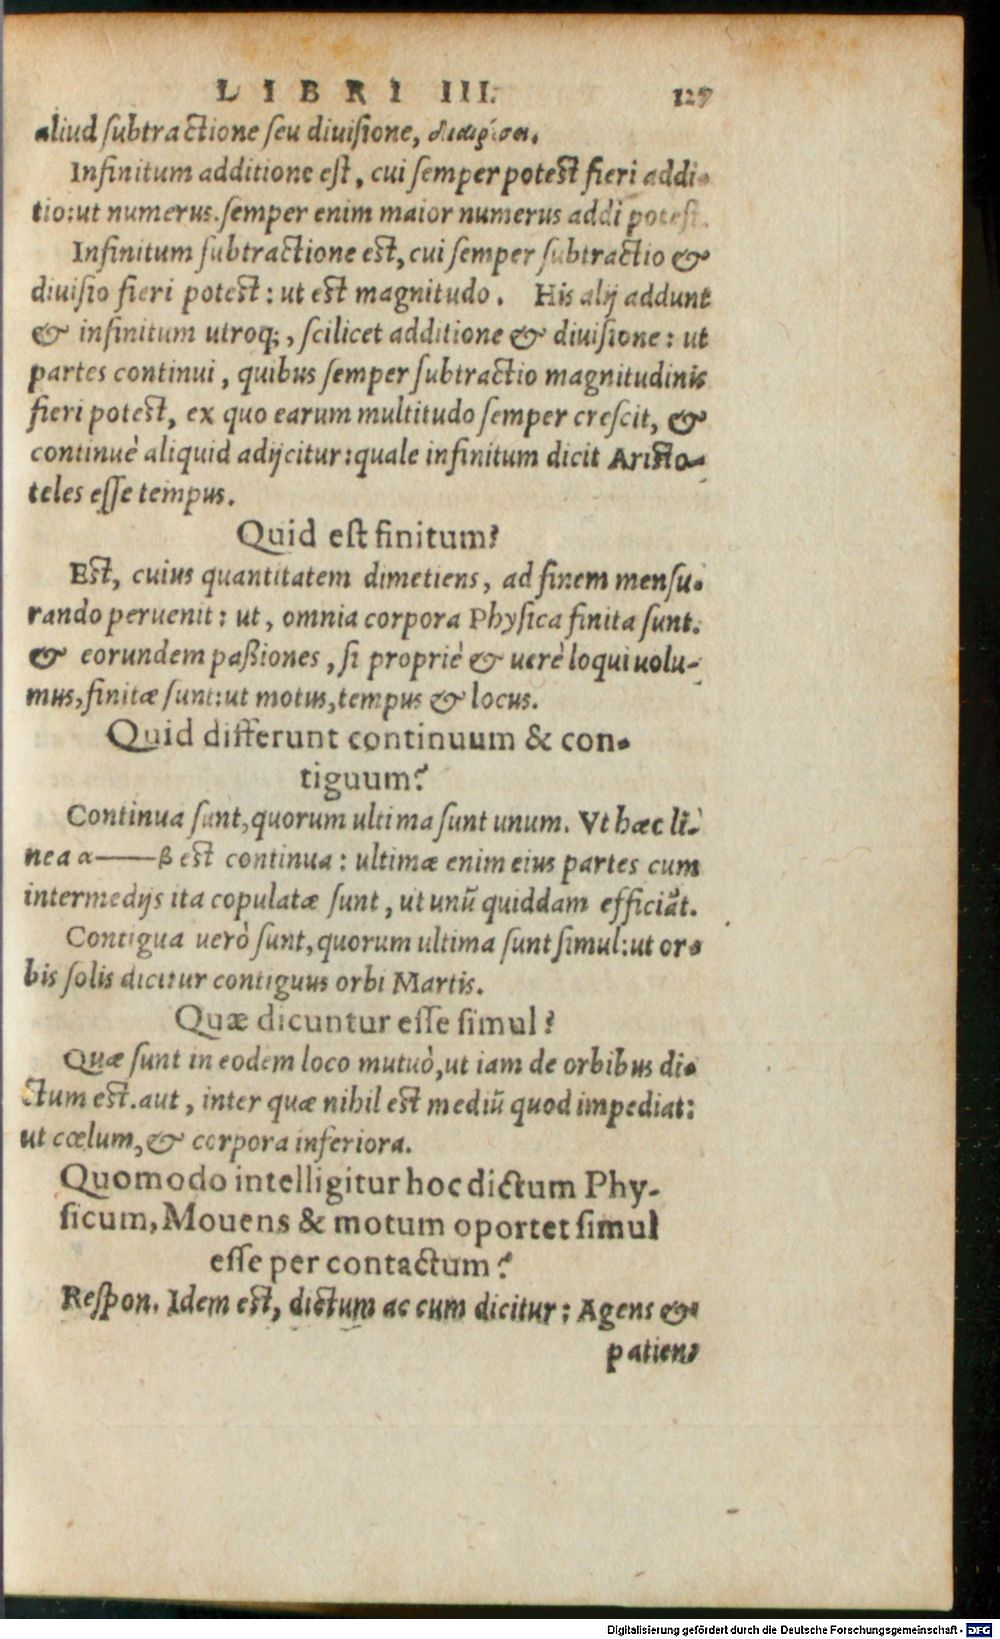 LIBRI III. 127
aliud subtractione seu diuisione, διαιρέσει.
Infinitum additione est, cui semper potest fieri addi-
tio: ut numerus. semper enim maior numerus addi potest.
Infinitum subtractione est, cui semper subtractio &
diuisio fieri potest: ut est magnitudo. His alij addunt
& infinitum utroq;, scilicet additione & diuisione: ut
partes continui, quibus semper subtractio magnitudinis
fieri potest, ex quo earum multitudo semper crescit, &
continuè aliquid adijcitur: quale infinitum dicit Aristo-
teles esse tempus.
Quid est finitum?
Est, cuius quantitatem dimetiens, ad finem mensu-
rando peruenit: ut, omnia corpora Physica finita sunt.
& eorundem paßiones, si propriè & uerè loqui uolu-
mus, finitæ sunt: ut motus, tempus & locus.
Quid differunt continuum & con-
tiguum?
Continua sunt, quorum ultima sunt unum. Vt hæc li-
nea α——β est continua: ultimæ enim eius partes cum
intermedijs ita copulatæ sunt, ut unũ quiddam efficiãt.
Contigua uerò sunt, quorum ultima sunt simul: ut or-
bis solis dicitur contiguus orbi Martis.
Quæ dicuntur esse simul?
Quæ sunt in eodem loco mutuò, ut iam de orbibus di-
ctum est. aut, inter quæ nihil est mediũ quod impediat:
ut cœlum, & corpora inferiora.
Quomodo intelligitur hoc dictum Phy-
sicum, Mouens & motum oportet simul
esse per contactum?
Respon. Idem est, dictum ac cum dicitur: Agens &
patiens
Digitalisierung gefördert durch die Deutsche Forschungsgemeinschaft - DFG